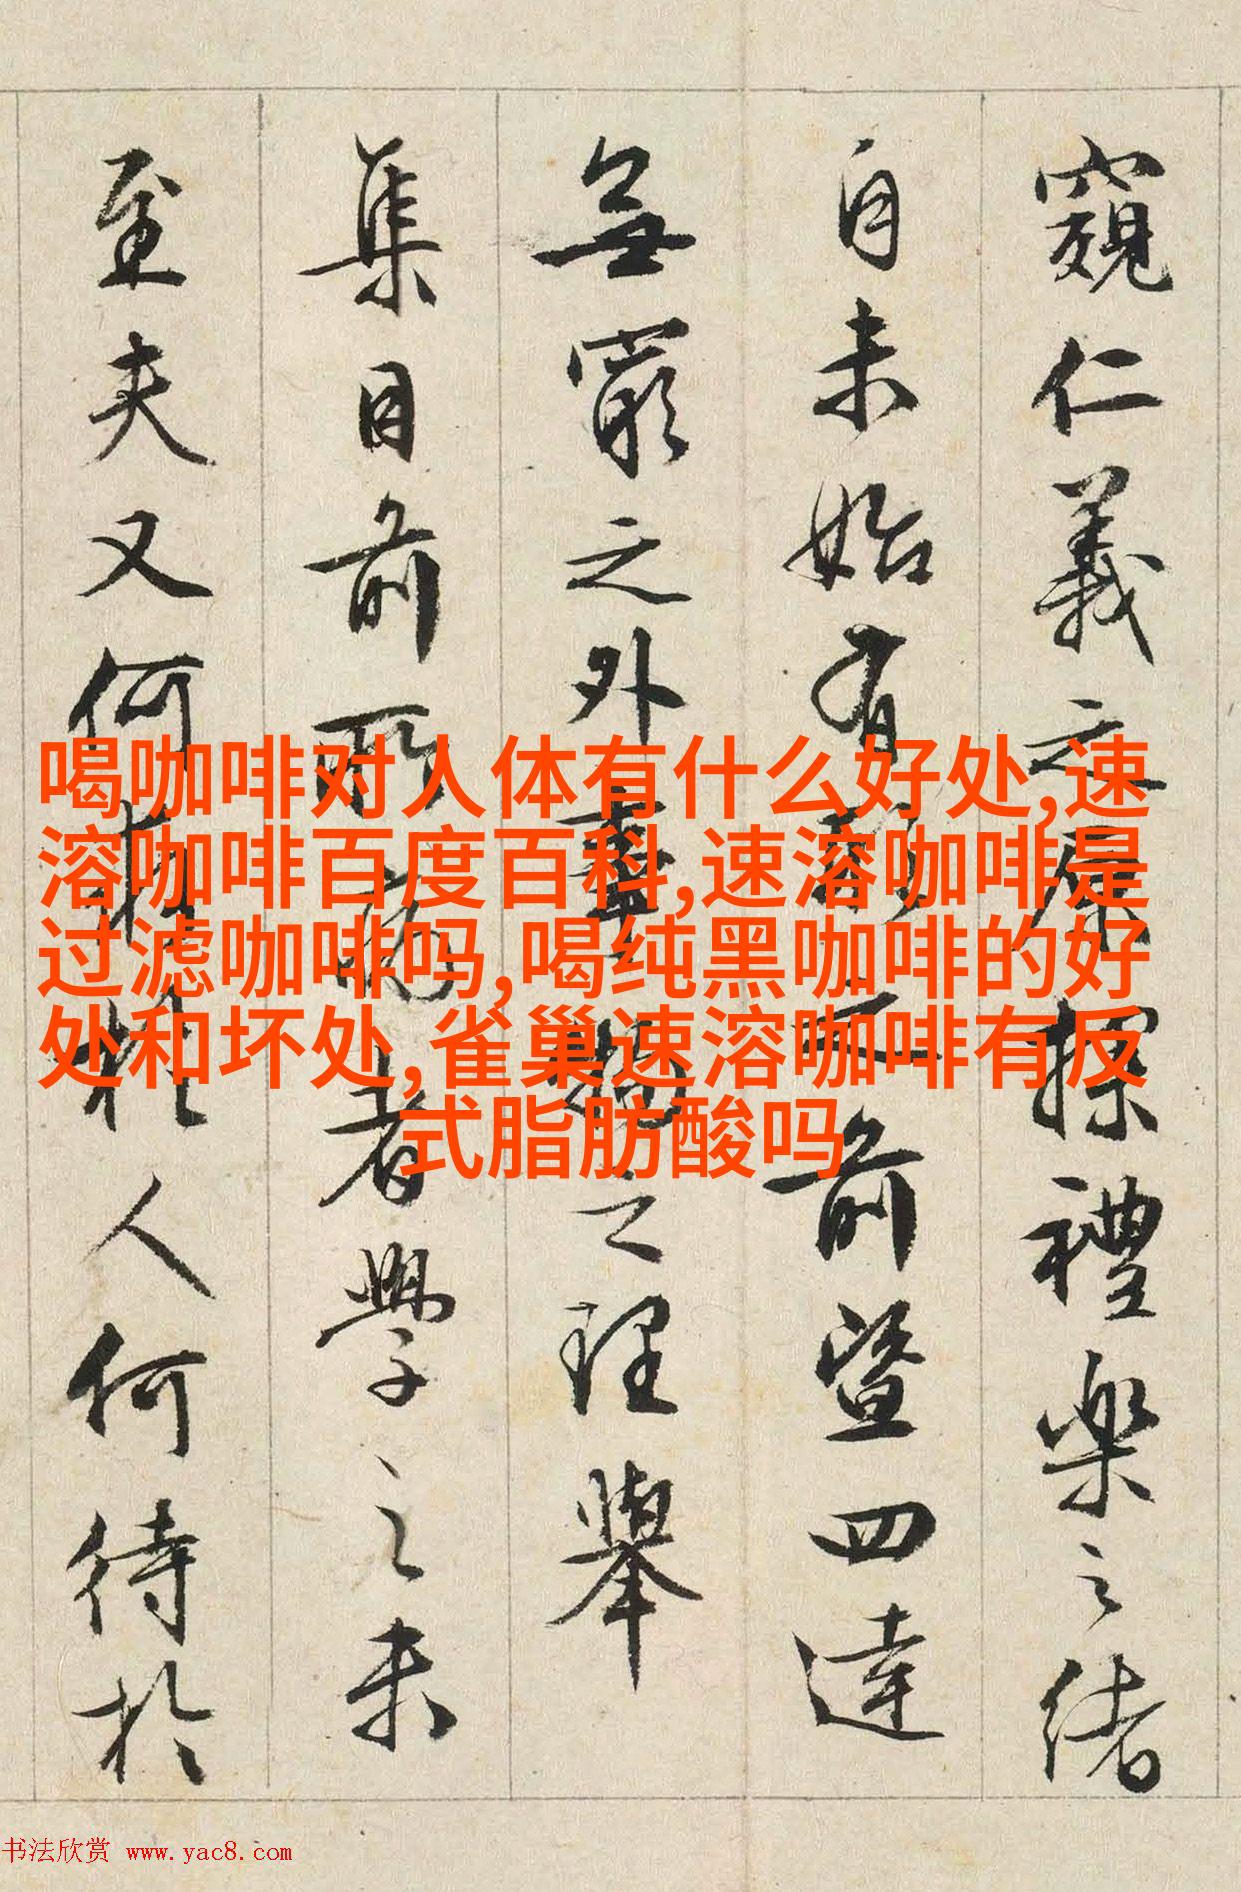 窺仁義之原探禮樂之緒
自未始有形之前暨四達
無窮之外事物之理舉
集目前所病者學之未
至夫又何求於人何待於
喝咖啡对人体有什么好处,速
溶咖啡百度百科,速溶咖啡是
过滤咖啡吗,喝纯黑咖啡的好
处和坏处,雀巢速溶咖啡有反
式脂肪酸吗
书法欣赏 www.yac8.com